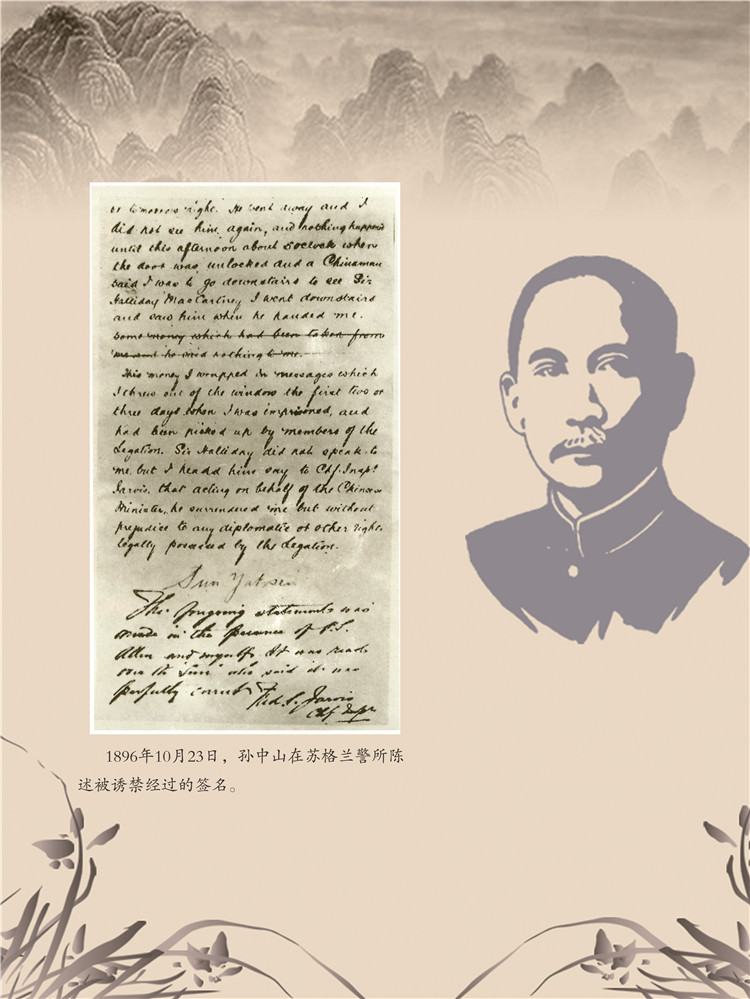 or tomorrow night. He went away and I
did not see him again, and nothing happened
until this afternoon about 5 o'clock when
the door was unlocked and a Chinaman
said I was to go downstairs to see Sir
Halliday MacCartney I went downstairs
and saw him when he handed me.
some money which had been taken from
me and he said nothing to me.
This money I wrapped in messages which
I threw out of the window the first two or
three days when I was imprisoned, and
had been picked up by members of the
Legation. Sir Halliday did not speak to
me but I heard him say to Chf. Inspr
Jarvis, that acting on behalf of the Chinese
Minister, he surrendered me but without
prejudice to any diplomatic or other rights
legally possessed by the Legation.
Sun Yatsen
The foregoing statement was
made in the presence of P.S.
Allen and myself. It was read
over to Sun who said it was
perfectly correct
Fred. S. Jarvis
Chf Inspr
1896年10月23日，孙中山在苏格兰警所陈
述被诱禁经过的签名。